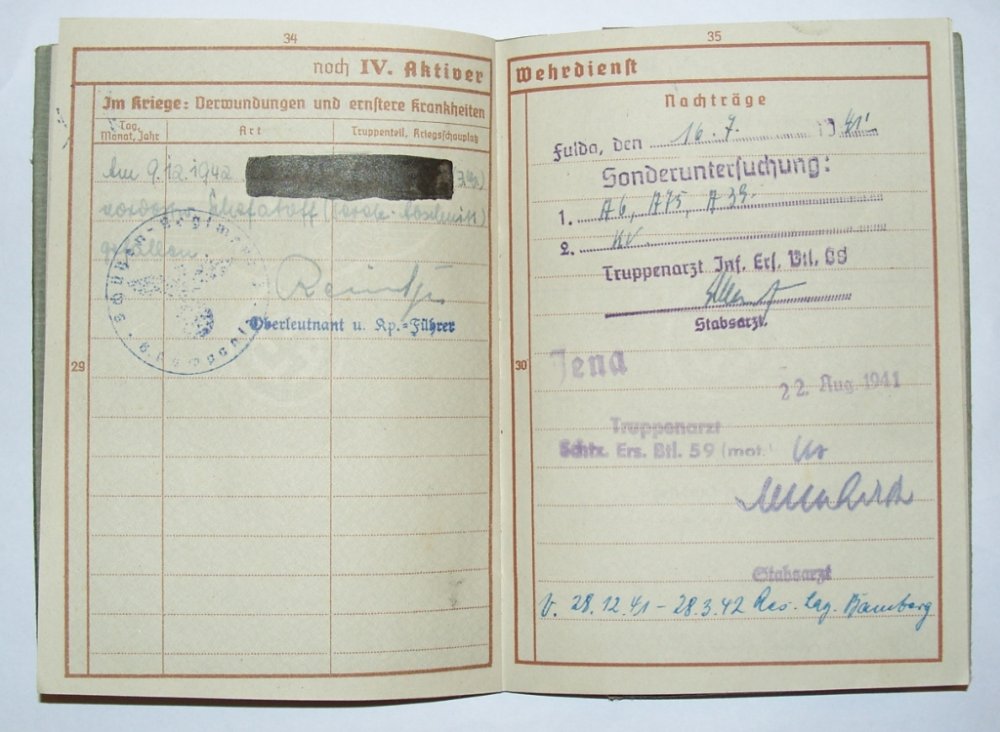 34
noch IV. Aktiver
Im Kriege: Verwundungen und ernstere Krankheiten
Tag, Monat, Jahr
Art
Truppenteil, Kriegsschauplatz
Am 9.12.1942
gefallen
Oberleutnant u. Kp.=Führer
29
35
Wehrdienst
Nachträge
Fulda, den 16.7. 1941
Sonderuntersuchung:
1. A6, A75, A39.
2. kv.
Truppenarzt Inf. Ers. Btl. 88
Stabsarzt.
30
Jena
22. Aug. 1941
Truppenarzt
Schtz. Ers. Btl. 59 (mot.) kv
Stabsarzt
V. 28.12.41 - 28.3.42 Res. Laz. Bamberg